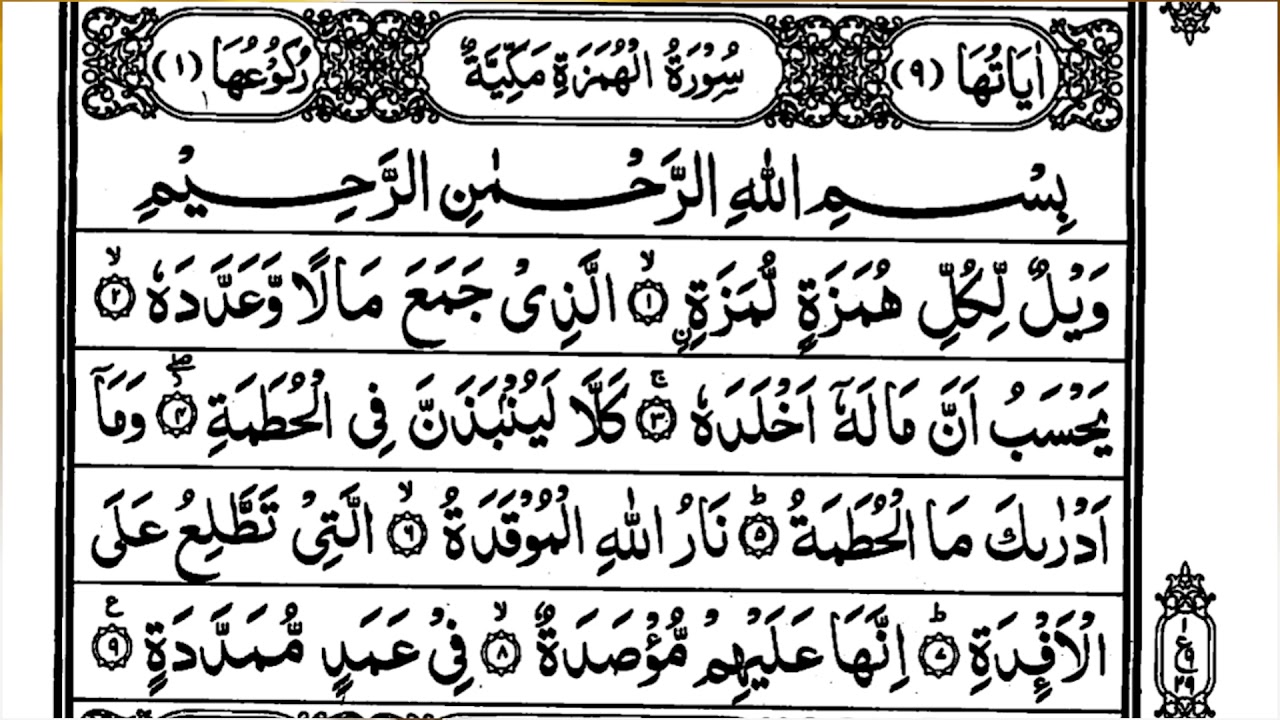 اٰيَاتُهَا (٩) سُوْرَةُ الْهُمَزَةِ مَكِّيَّةٌ رُكُوْعُهَا (١)
بِسْمِ اللهِ الرَّحْمٰنِ الرَّحِيْمِ
وَيْلٌ لِّكُلِّ هُمَزَةٍ لُّمَزَةِ ۨ ۙ‏﴿١﴾ الَّذِىْ جَمَعَ مَالًا وَّعَدَّدَهٗ ۙ‏﴿٢﴾
يَحْسَبُ اَنَّ مَالَهٗۤ اَخْلَدَهٗ ۚ‏﴿٣﴾ كَلَّا لَيُنْۢبَذَنَّ فِى الْحُطَمَةِ ۖ‏﴿٤﴾ وَمَاۤ
اَدْرٰىكَ مَا الْحُطَمَةُ ؕ‏﴿٥﴾ نَارُ اللّٰهِ الْمُوْقَدَةُ ۙ‏﴿٦﴾ الَّتِىْ تَطَّلِعُ عَلَى
الْاَفْـِٕدَةِ ؕ‏﴿٧﴾ اِنَّهَا عَلَيْهِمْ مُّؤْصَدَةٌ ۙ‏﴿٨﴾ فِىْ عَمَدٍ مُّمَدَّدَةٍ ع﴿٩﴾
١
ع
٩
٢٩